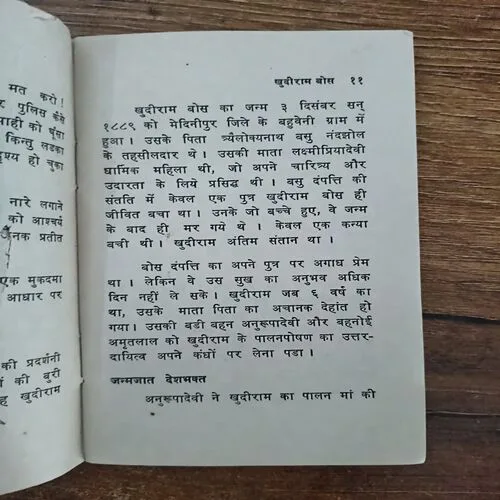 मत करो!
पुलिस कैसे
को घूंसा
किन्तु लड़का
हो चुका
नारे लगाने
को आश्चर्य
प्रतीत
एक मुकदमा
आधार पर
की प्रदर्शनी
की बुरी
खुदीराम
खुदीराम बोस ११
खुदीराम बोस का जन्म ३ दिसंबर सन्
१८८९ को मेदिनीपुर जिले के बहुवेनी ग्राम में
हुआ। उसके पिता त्र्यैलोक्यनाथ बसु नंदझोल
के तहसीलदार थे। उसकी माता लक्ष्मीप्रियादेवी
धार्मिक महिला थी, जो अपने चारित्र्य और
उदारता के लिये प्रसिद्ध थी। बसु दंपत्ति की
संतति में केवल एक पुत्र खुदीराम बोस ही
जीवित बचा था। उनके जो बच्चे हुए, वे जन्म
के बाद ही मर गये थे। केवल एक कन्या
बची थी। खुदीराम अंतिम संतान था।
बोस दंपत्ति का अपने पुत्र पर अगाध प्रेम
था। लेकिन वे उस सुख का अनुभव अधिक
दिन नहीं ले सके। खुदीराम जब ६ वर्ष का
था, उसके माता पिता का अचानक देहांत हो
गया। उसकी बडी बहन अनुरूपादेवी और बहनोई
अमृतलाल को खुदीराम के पालनपोषण का उत्तर-
दायित्व अपने कंधों पर लेना पडा।
जन्मजात देशभक्त
अनुरूपादेवी ने खुदीराम का पालन मां की